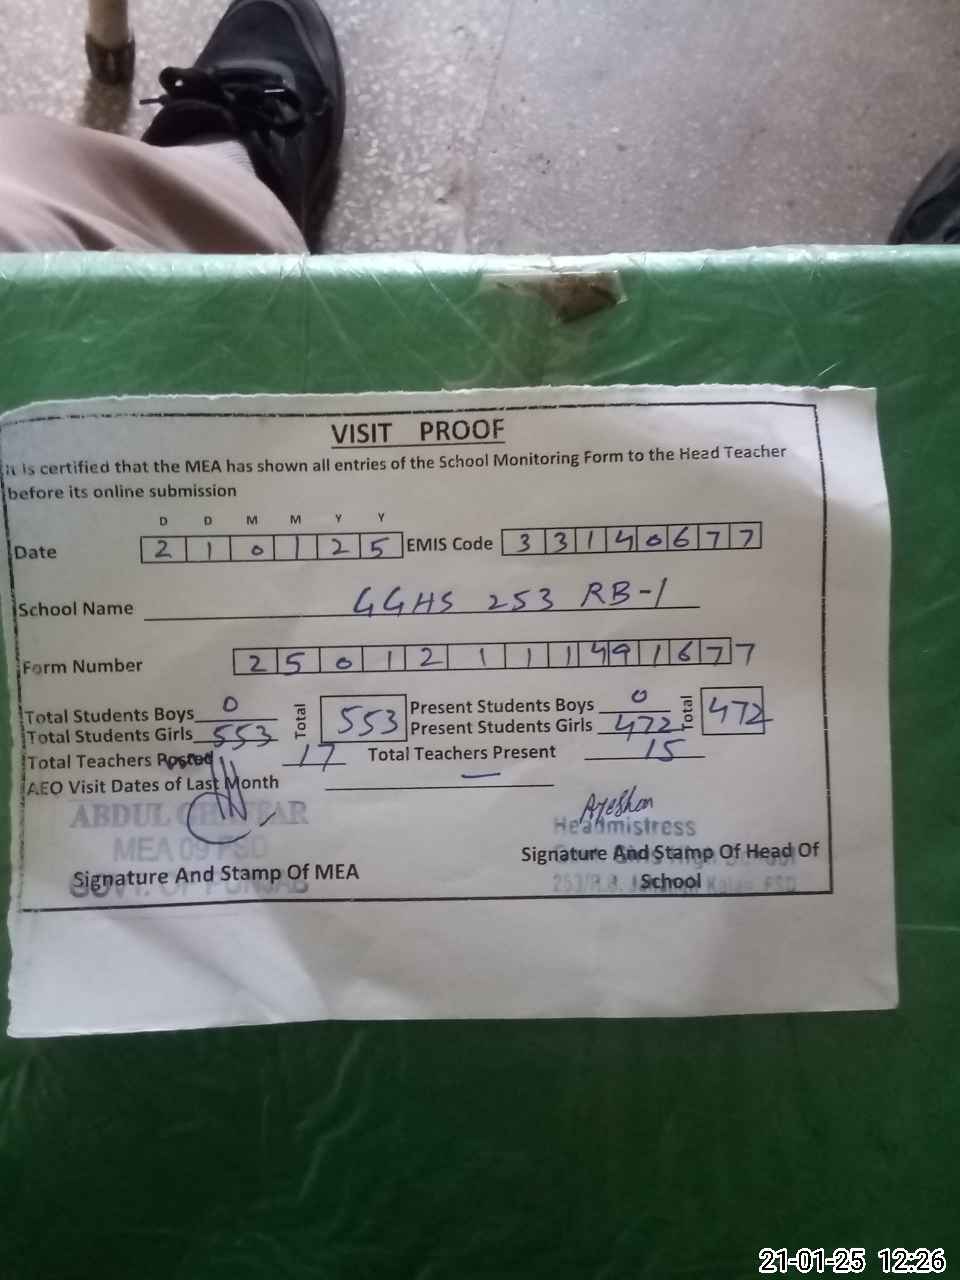 VISIT PROOF
it is certified that the MEA has shown all entries of the School Monitoring Form to the Head Teacher
before its online submission
D D M M Y Y
Date 2 1 0 1 2 5 EMIS Code 3 3 1 4 0 6 7 7
School Name GGHS 253 RB-1
Form Number 2 5 0 1 2 1 1 1 4 9 1 6 7 7
Total Students Boys 0 Total 553 Present Students Boys 0 Total 472
Total Students Girls 553 Present Students Girls 472
Total Teachers Posted 17 Total Teachers Present 15
AEO Visit Dates of Last Month —
ABDUL GHAFFAR
MEA 09 FSD
Signature And Stamp Of MEA
GOVT. OF PUNJAB
Ayesha
Headmistress
Signature And Stamp Of Head Of
253/R.B. School Kalan, FSD
21-01-25 12:26